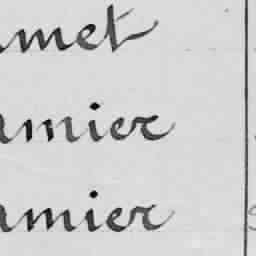 umet
amier
amier